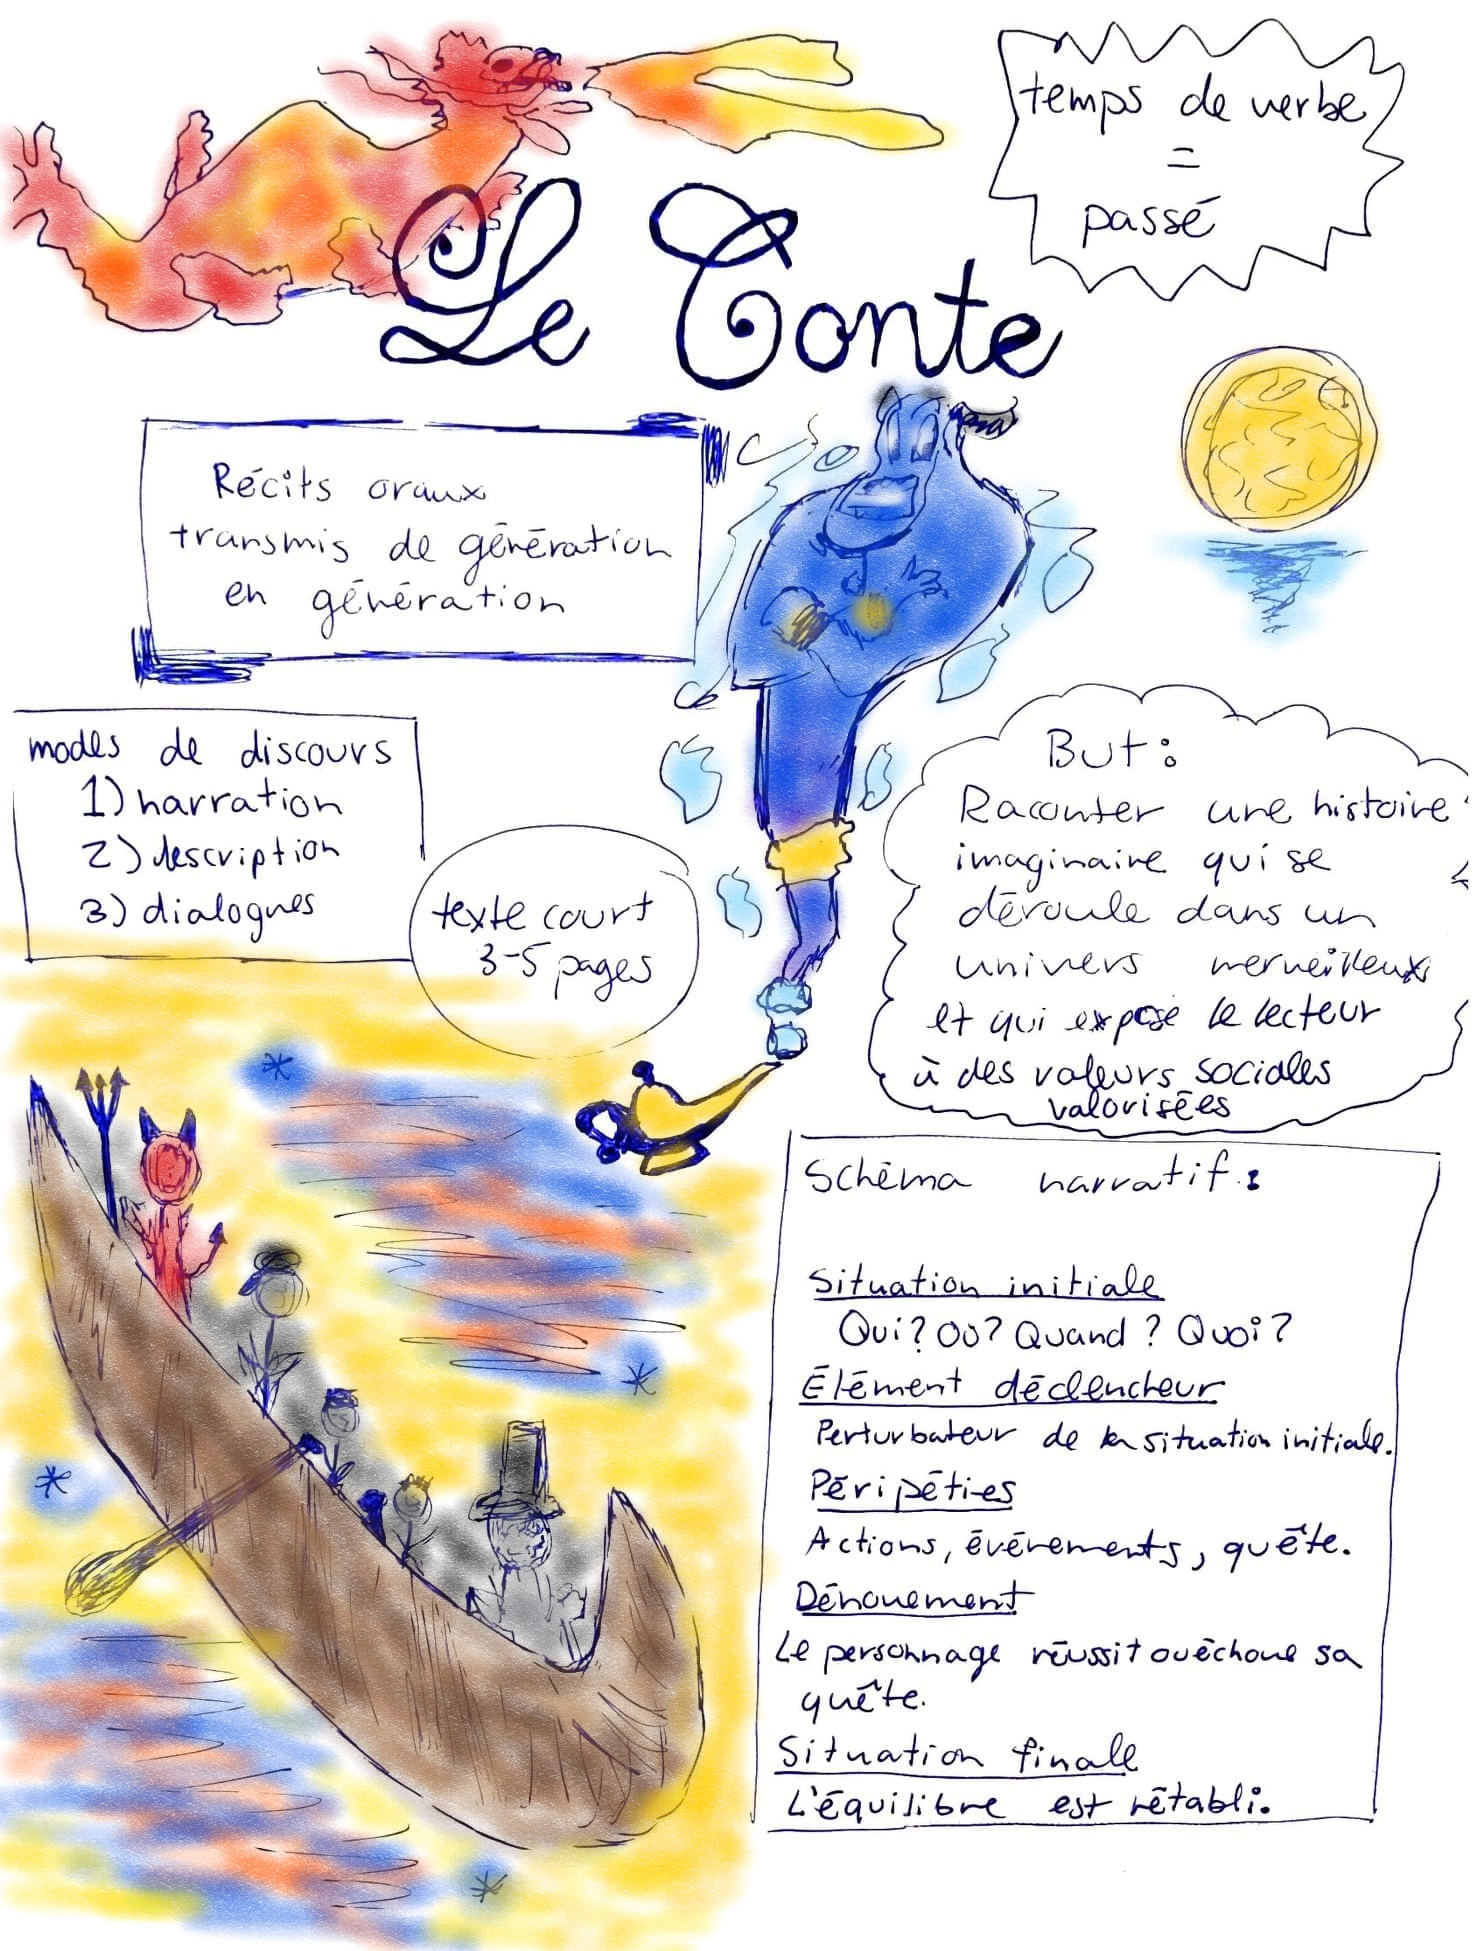 temps de verbe
=
passé
Le Conte
Récits oraux
transmis de génération
en génération
modes de discours
1) narration
2) description
3) dialogues
texte court
3-5 pages
But :
Raconter une histoire
imaginaire qui se
déroule dans un
univers merveilleux
et qui expose le lecteur
à des valeurs sociales
valorisées
Schéma narratif :
Situation initiale
Qui? Où? Quand? Quoi?
Élément déclencheur
Perturbateur de la situation initiale.
Péripéties
Actions, événements, quête.
Dénouement
Le personnage réussit ou échoue sa
quête.
Situation finale
L'équilibre est rétabli.